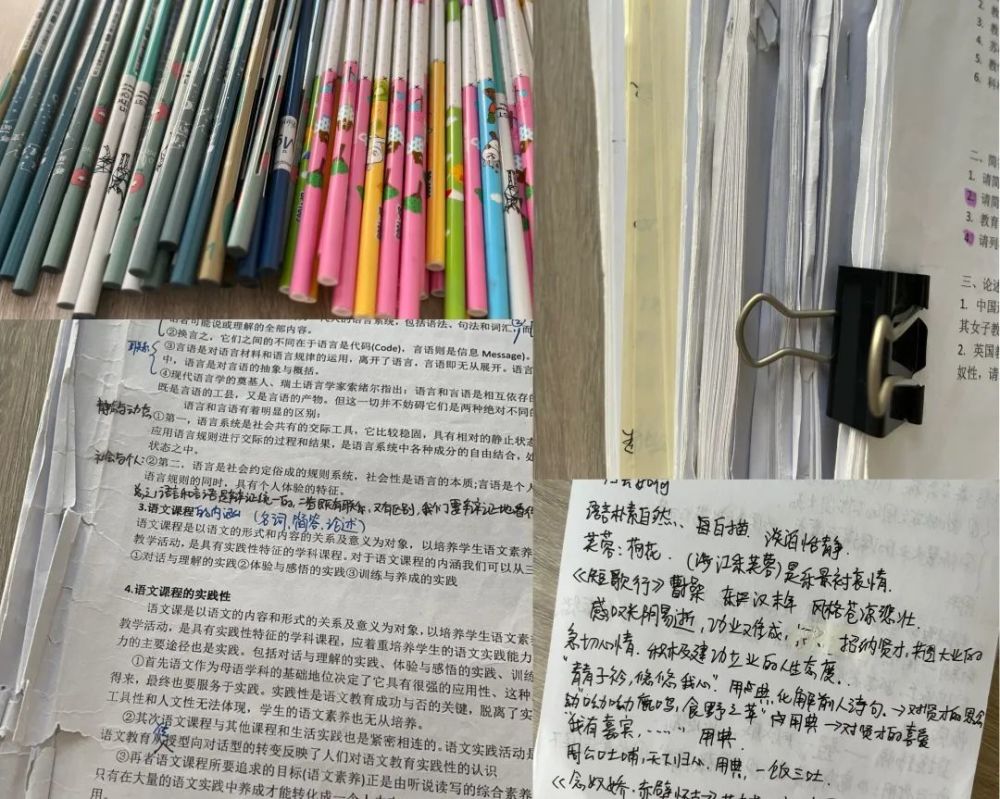 2. 教
3. 教
4. 苏
5. 教
6. 科
二、简
1. 请简
2. 请简
3. 教育
4. 请列
三、论述
1. 中国近
其女子教
2. 英国教
奴性，请
代式的语言系统，包括语法、句法和词汇，而
语者可能说或理解的全部内容。
②换言之，它们之间的不同在于语言是代码(Code)，言语则是信息 Message)。
联系
③言语是对语言材料和语言规律的运用，离开了语言，言语即无从展开。语言
中，语言是对言语的抽象与概括。
④现代语言学的奠基人、瑞士语言学家索绪尔指出，语言和言语是相互依存的
既是言语的工县，又是言语的产物。但这一切并不妨碍它们是两种绝对不同的
语言和言语有着明显的区别：
静态与动态
①第一，语言系统是社会共有的交际工具，它比较稳固，具有相对的静止状态
应用语言规则进行交际的过程和结果，是语言系统中各种成分的自由结合，处
状态之中。
社会与个人：
②第二，语言是社会约定俗成的规则系统，社会性是语言的本质;言语是个人
语言规则的同时，具有个人体验的特征。
总之，语言和言语是辩证统一的，二者既有联系，又有区别，我们要辩证地看待
3.语文课程的内涵（名词、简答、论述）
语文课是以语文的形式和内容的关系及意义为对象，以培养学生语文素养
教学活动，是具有实践性特征的学科课程。对于语文课程的内涵我们可以从三
①对话与理解的实践②体验与感悟的实践③训练与养成的实践
4.语文课程的实践性
语文课是以语文的内容和形式的关系及意义为对象，以培养学生语文素
教学活动，是具有实践性特征的学科课程，应着重培养学生的语文实践能力
力的主要途径也是实践。包括对话与理解的实践、体验与感悟的实践、训练
①首先语文作为母语学科的基础地位决定了它具有很强的应用性、这种
得来，最终也要服务于实践。实践性是语文教育成功与否的关键，脱离了实
工具性和人文性无法体现，学生的语文素养也无从培养。
②其次语文课程与其他课程和生活实践也是紧密相连的。语文实践活动是
语文教育从传授型向对话型的转变反映了人们对语文教育实践性的认识
③再者语文课程所要追求的目标(语文素养)正是由听说读写的综合素养
只有在大量的语文实践中养成才能转化成一个人
用。
语言朴素自然、每白描、淡泊恬静．
芙蓉：荷花．（涉江采芙蓉）是乐景衬哀情．
《短歌行》曹操 东汉末年 风格苍凉悲壮．
感叹光阴易逝，功业难成，招纳贤才，共图大业的
急切心情．积极建功立业的人生态度．
“青青子衿，悠悠我心”．用典，化解前人诗句．→对贤才的思念
“呦呦鹿鸣，食野之苹”用典→对贤才的喜爱
“我有嘉宾，……”用典．
周公吐哺，天下归心．用典，一饭三吐．
《念奴娇·赤壁怀古》